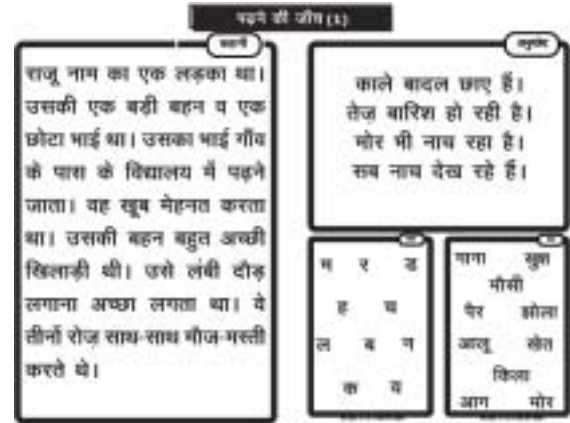 पढ़ने की जाँच (1)
कहानी
राजू नाम का एक लड़का था।
उसकी एक बड़ी बहन व एक
छोटा भाई था। उसका भाई गाँव
के पास के विद्यालय में पढ़ने
जाता। वह खूब मेहनत करता
था। उसकी बहन बहुत अच्छी
खिलाड़ी थी। उसे लंबी दौड़
लगाना अच्छा लगता था। वे
तीनों रोज़ साथ-साथ मौज-मस्ती
करते थे।
अनुच्छेद
काले बादल छाए हैं।
तेज़ बारिश हो रही है।
मोर भी नाच रहा है।
सब नाच देख रहे हैं।
म र ड
ह
ल ब न
क
गाना खुश
मौसी
पैर झोला
आलू खेत
किला
आग मोर